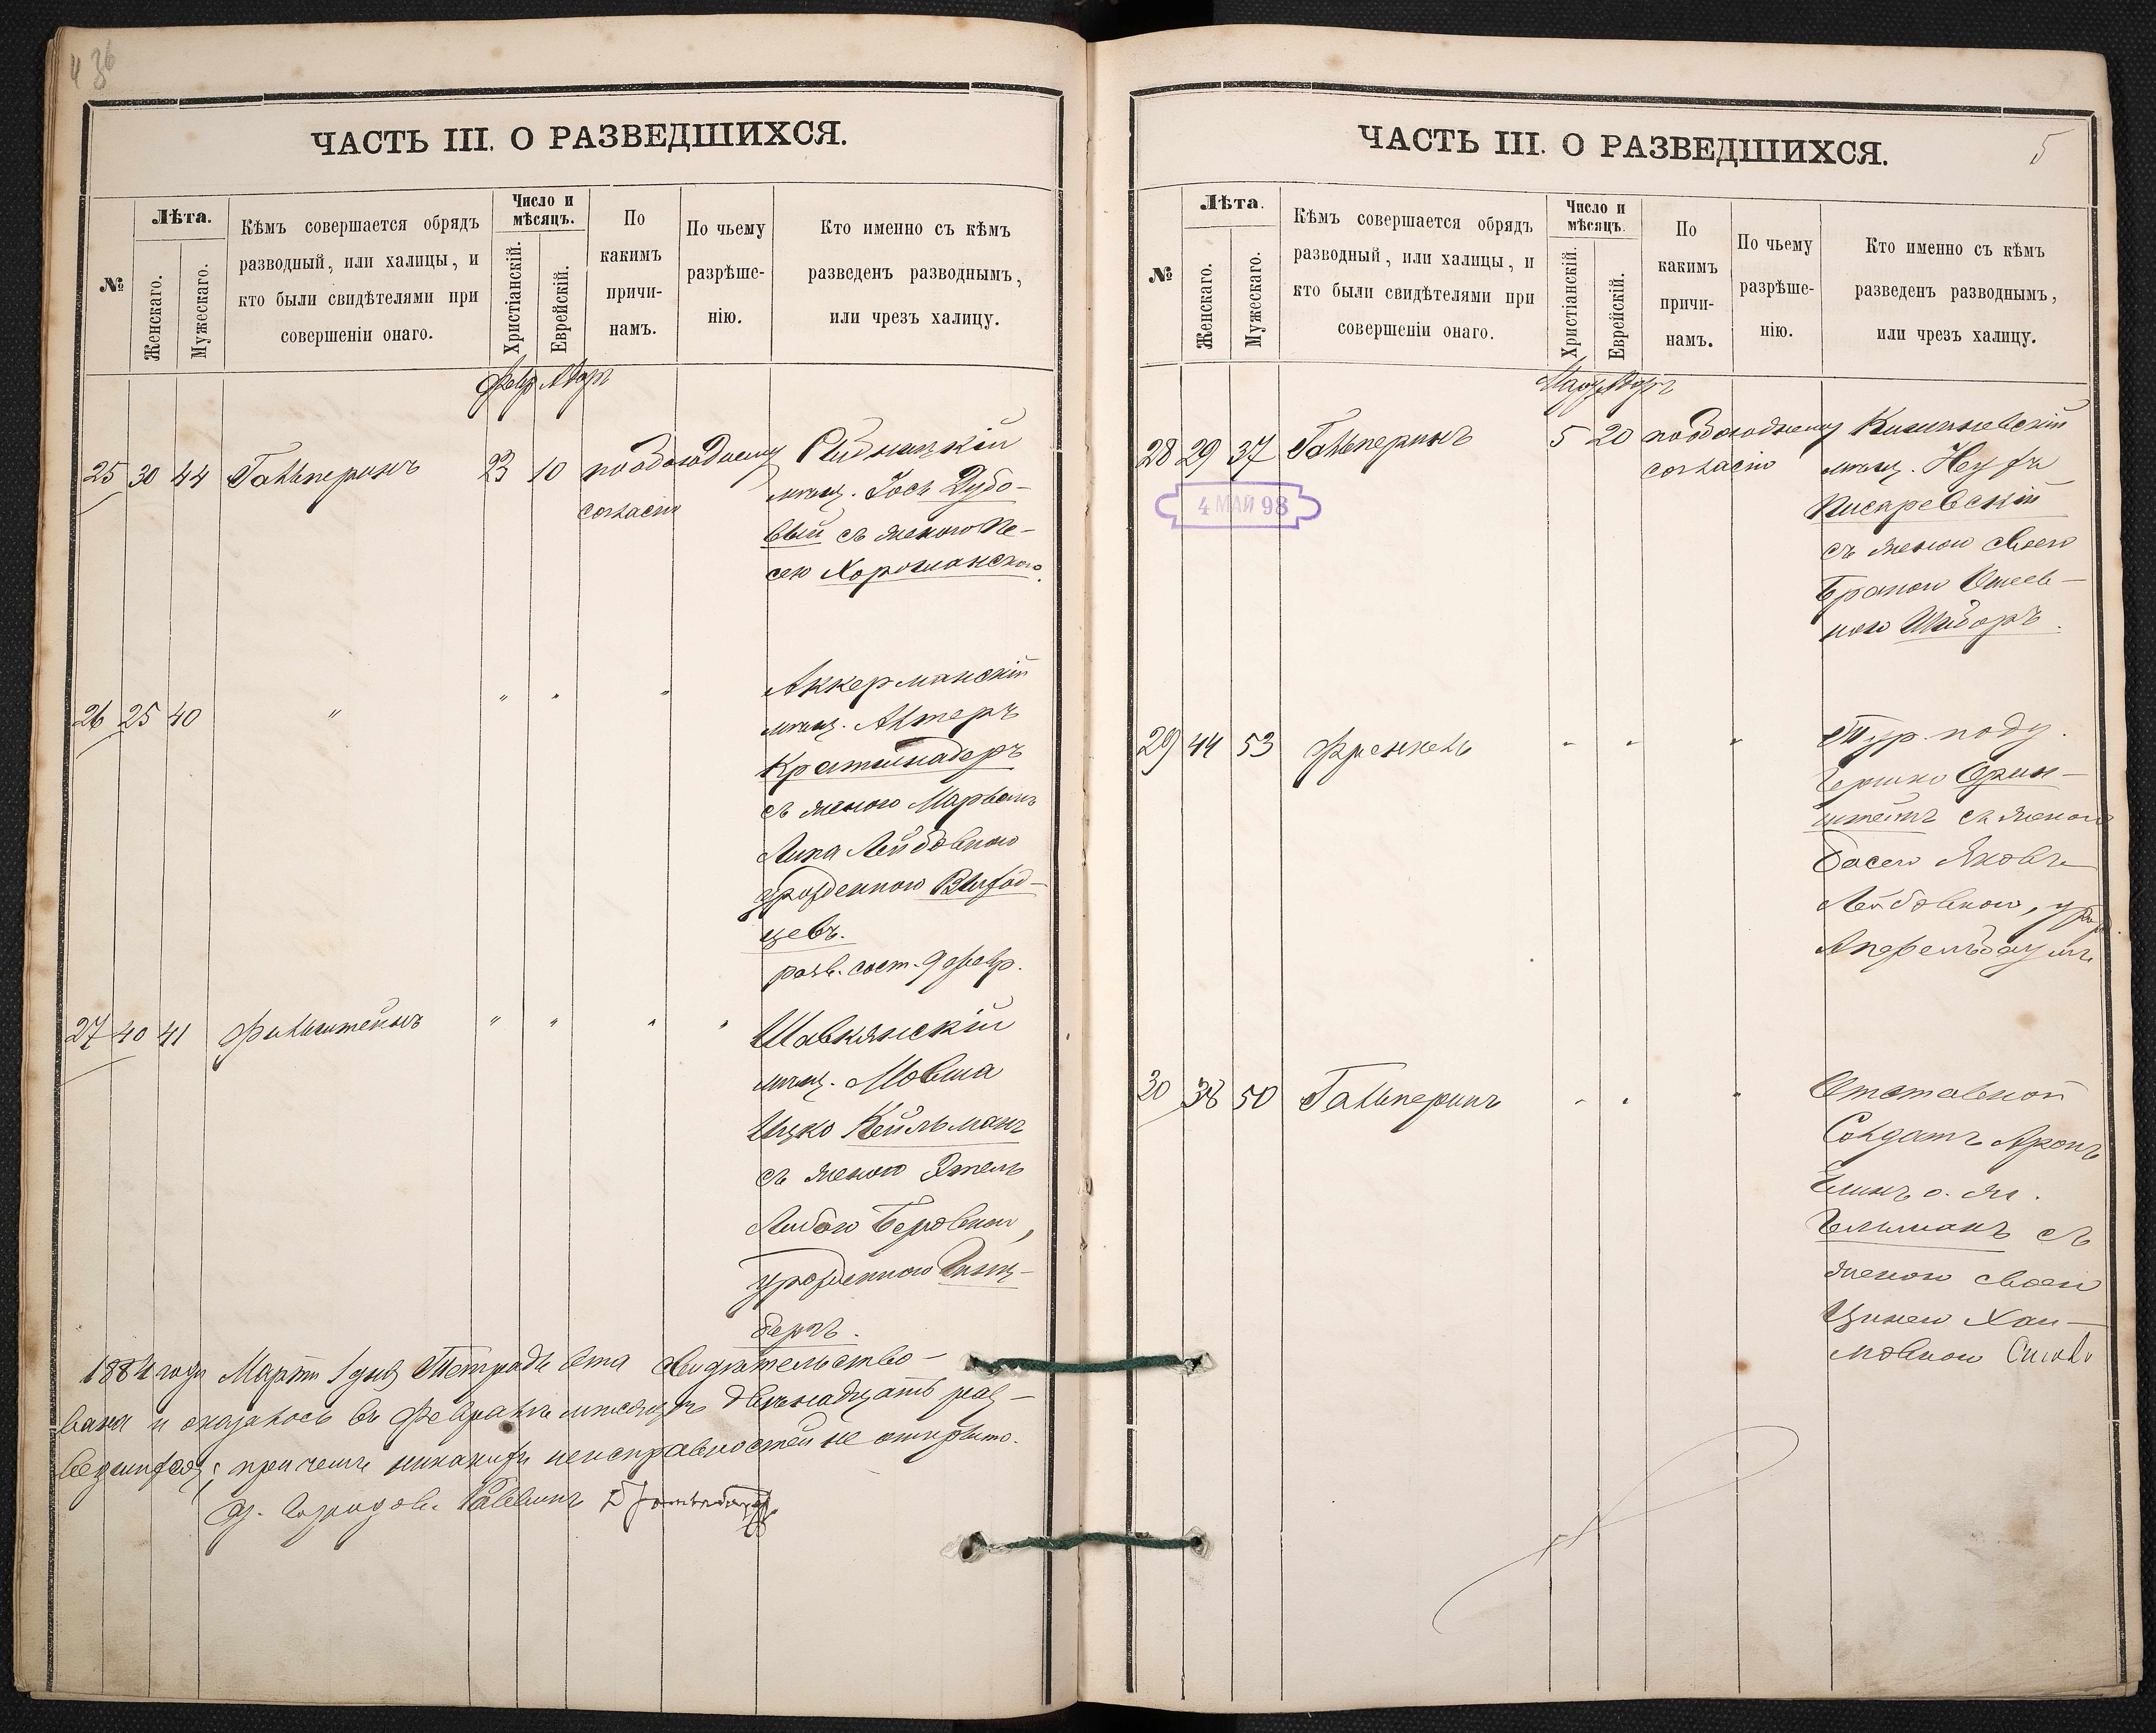 36
ЧАСТЬ III. О РАЗВЕДШИХСЯ.
№
Лѣта.
Женскаго.
Мужескаго.
Кѣмъ совершается обрядъ
разводный, или халицы, и
кто были свидѣтелями при
совершеніи онаго.
Число и
мѣсяцъ.
Христіанскій.
Еврейскій.
По
какимъ
причи-
намъ.
По чьему
разрѣше-
нію.
Кто именно съ кѣмъ
разведенъ разводнымъ,
или чрезъ халицу.
Февр Адаръ
25 30 44 Гальперинъ 23 10 по обоюдному
согласію
мѣщ. Іось Дубо-
вый съ женою Пе-
сею Хорошанскою.
26 25 40 " " " "
Аккерманскій
мѣщ. Альтеръ
съ женою Марьемъ
Лейбовною
урожденною Выход-
цевъ.
разв. сост. 9 февр.
27 40 41 Финкельштейнъ " " " "
Шавлянскій
мѣщ. Мовша
Ицко Кейльманъ
съ женою Этель
Либою Беровною,
урожденною Гинц-
бергъ.
1884 года Марта 1 дня Тетрадь эта свидѣтельство-
вана и оказалось въ Февралѣ мѣсяцѣ двѣнадцать раз-
ведшихся; при чемъ никакихъ неисправностей не открыто.
Раввинъ
5
ЧАСТЬ III. О РАЗВЕДШИХСЯ.
№
Лѣта.
Женскаго.
Мужескаго.
Кѣмъ совершается обрядъ
разводный, или халицы, и
кто были свидѣтелями при
совершеніи онаго.
Число и
мѣсяцъ.
Христіанскій.
Еврейскій.
По
какимъ
причи-
намъ.
По чьему
разрѣше-
нію.
Кто именно съ кѣмъ
разведенъ разводнымъ,
или чрезъ халицу.
Мар Адаръ
28 29 37 Гальперинъ 5 20 по обоюдному
согласію
4 МАЙ 98
Кишиневскій
мѣщ.
Писаревскій
съ женою своею
29 44 53 Френкель " " "
Тур. подд.
Гершко Орен-
штейнъ съ женою
Басею
Лейбовною, урожд.
Апфельбаумъ
30 38 50 Гальперинъ " " "
Отставной
Солдатъ Аронъ
Гельманъ съ
женою своею
Ципею Хаи-
мовною